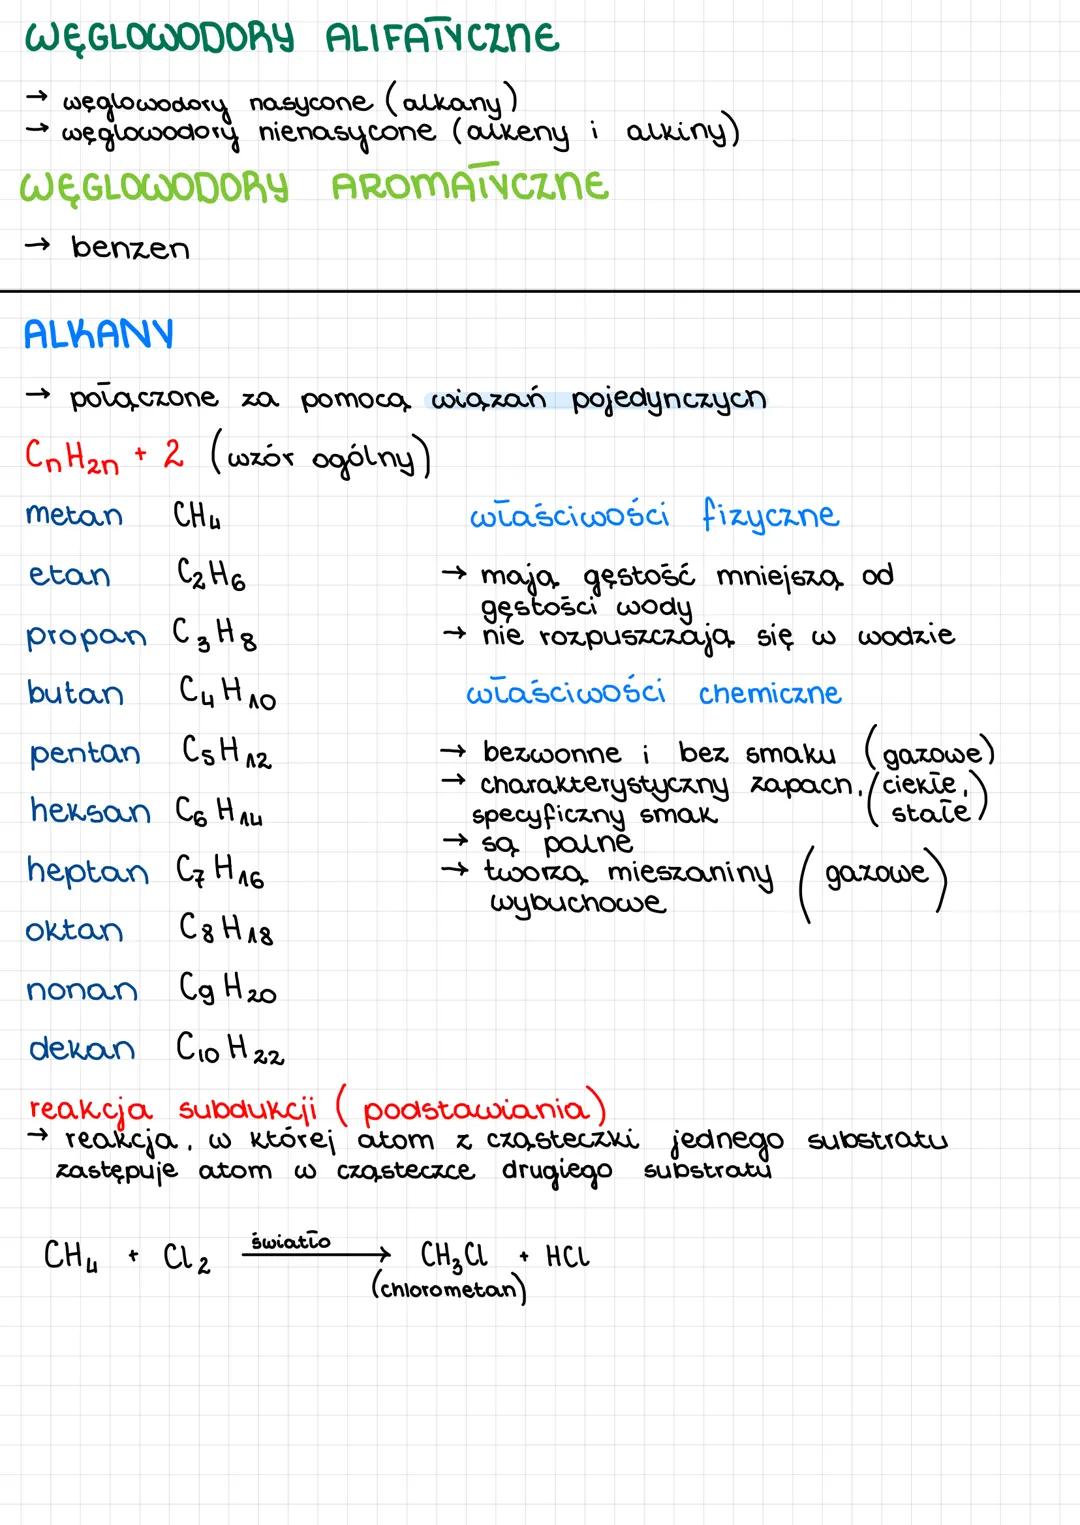 WĘGLOWODORY ALIFATYCZNE
→ węglowodory nasycone (alkany)
→ węglowodory nienasycone (alkeny i alkiny)
WĘGLOWODORY AROMATYCZNE
→ benzen
ALKANY
→ połączone za pomocą wiązań pojedynczych
CnH2n + 2 (wzór ogólny)
metan CH4
etan C2H6
propan C3H8
butan C4H10
pentan C5H12
heksan C6H14
heptan C7H16
oktan C8H18
nonan C9H20
dekan C10H22
właściwości fizyczne
→ mają gęstość mniejszą od
gęstości wody
→ nie rozpuszczają się w wodzie
właściwości chemiczne
→ bezwonne i bez smaku (gazowe)
→ charakterystyczny zapach, (ciekłe,
specyficzny smak stałe)
→ są palne
→ tworzą mieszaniny (gazowe)
wybuchowe
reakcja subdukcji (podstawiania)
→ reakcja, w której atom z cząsteczki jednego substratu
zastępuje atom w cząsteczce drugiego substratu
CH4 + Cl2 światło → CH3Cl + HCl
(chlorometan)